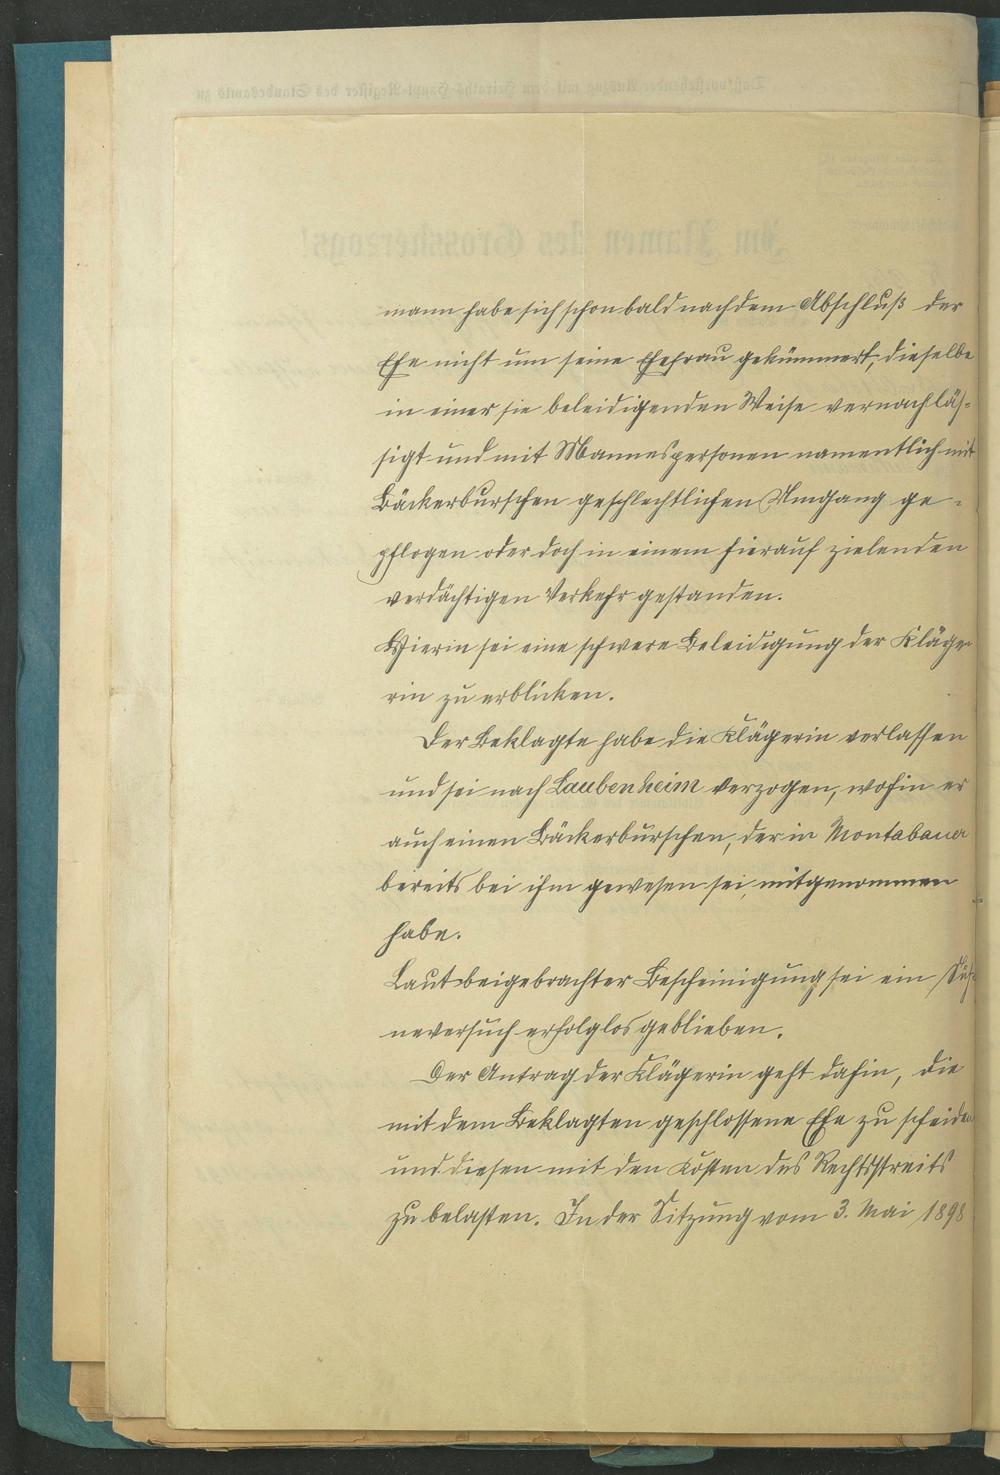 mann habe sich schon bald nach dem Abschluß der
Ehe nicht um seine Ehefrau gekümmert, dieselbe
in einer sie beleidigenden Weise vernachläs-
sigt und mit Mannespersonen namentlich mit
Bäckerburschen geschlechtlichen Umgang ge-
pflogen oder doch in einem hierauf zielenden
verdächtigen Verkehr gestanden.
Hierin sei eine schwere Beleidigung der Kläge-
rin zu erblicken.
Der Beklagte habe die Klägerin verlassen
und sei nach Laubenheim verzogen, wohin er
auch einen Bäckerburschen, der in Montabauer
bereits bei ihm gewesen sei, mitgenommen
habe.
Laut beigebrachter Bescheinigung sei ein Süh-
neversuch erfolglos geblieben.
Der Antrag der Klägerin geht dahin, die
mit dem Beklagten geschlossene Ehe zu scheiden
und diesen mit den Kosten des Rechtsstreits
zu belasten. In der Sitzung vom 3. Mai 1898